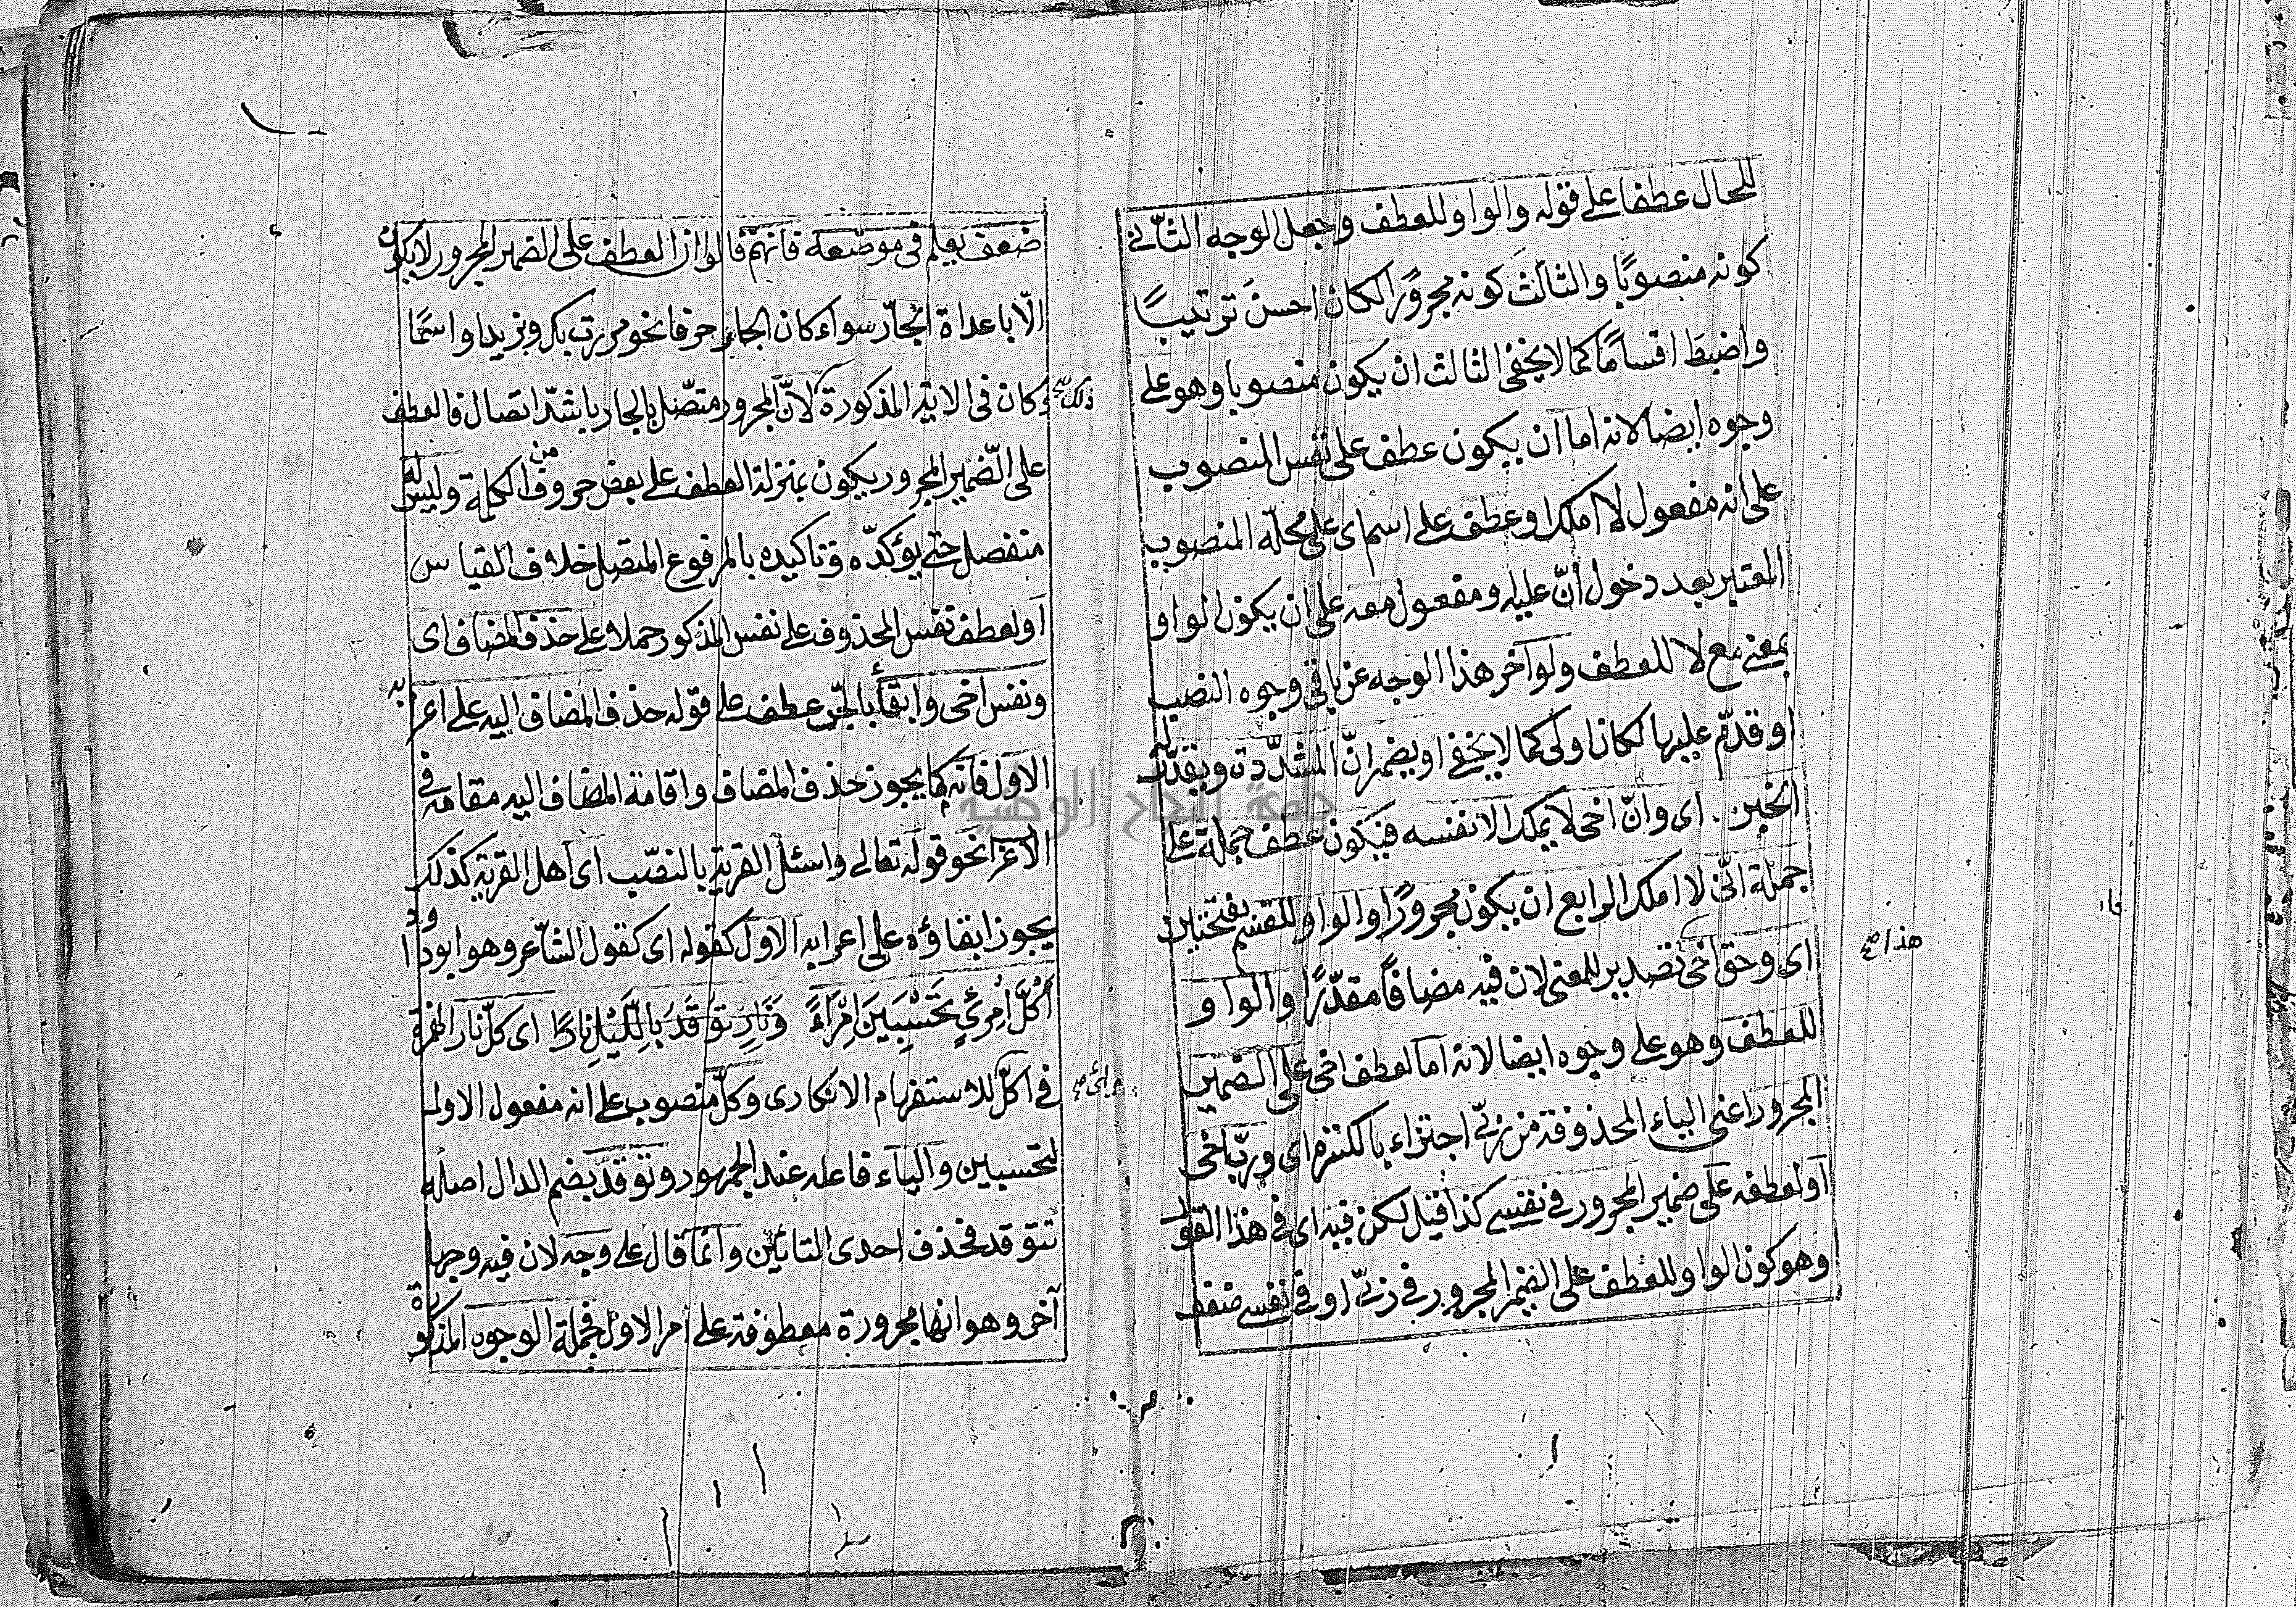 للحال عطفا على قوله والواو للعطف وجعل الوجه الثاني
كونه منصوبًا والثالث كونه مجرورًا لكان احسن ترتيبًا
واضبط اقسامًا كما لا يخفى الثالث ان يكون منصوبا وهو على
وجوه ايضا لانه اما ان يكون عطف على نفس المنصوب
على انه مفعول لا املك او عطف على اسم اى على محله المنصوب
المعتبر بعد دخول انّ عليه ومفعول معه على ان يكون الواو
بمعنى مع لا للعطف ولو اخر هذا الوجه عن باقى وجوه النصب
او قدّم عليها لكان اولى كما لا يخفى او يضمر انّ المشدّدة ويقدّر له
الخبر . اى وانّ اخى لا يملك الا نفسه فيكون عطف جملة على
جملة انّى لا املك الرابع ان يكون مجرورًا والواو للقسم بفتحتين
اى وحق اخى تصدير للمعنى لان فيه مضافًا مقدّرًا والواو
هذا صح
للعطف وهو على وجوه ايضا لانه اما لعطف اخى على الضمير
المجرور اعنى الياء المحذوفة من ربّى اجتزاء بالكسرة اى وربّ اخى
او لعطفه على ضمير المجرور فى نفسى كذا قيل لكن فيه اى فى هذا القول
وهو كون الواو للعطف على الضمير المجرور فى ربّى او فى نفسى ضعف
ضعف يعلم فى موضعه فانهم قالوا ان العطف على الضمير المجرور لا يكون
الّا باعداة الجارّ سواء كان الجار حرفا نحو مررت بك وبزيد او اسمًا
ذلك صح وكان فى الاية المذكورة لانّ المجرور متصل بالجار باشدّ اتصال فالعطف
على الضّمير المجرور يكون بمنزلة العطف على بعض حروف من الكلمة وليس له
منفصل حتى يؤكدّه وتاكيده بالمرفوع المتصل خلاف القياس
او لعطف نفس المحذوف على نفس المذكور حملا على حذف المضاف اى
ونفس اخى وابقاء بالجر عطف على قوله حذف المضاف اليه على اعرابه
الاول فانه كما يجوز حذف المضاف واقامة المضاف اليه مقامه فى
الاعراب نحو قوله تعالى واسئل القرية بالنصب اى اهل القرية كذلك
يجوز ابقاؤه على اعرابه الاول كقوله اى كقول الشاعر وهو ابو داود
اَكُلَّ امْرِئٍ تَحْسَبِينَ امْرَاءً وَنَارٍ تَوَقَّدُ بِاللَّيْلِ نَارًا اى كلّ نار الهمزة
فى اكلّ للاستفهام الانكارى وكلّ منصوب على انه مفعول الاول
لتحسبين والياء فاعله عند الجمهور وتوقدّ بضم الدال اصله
تتوقد فحذف احدى التائين وانما قال على وجه لان فيه وجها
آخر وهو انها مجرورة معطوفة على امر الاول فجملة الوجوه المذكورة